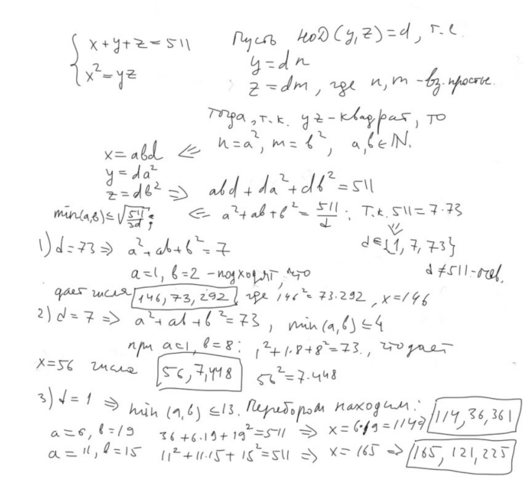 { x+y+z=511
x²=yz
Пусть НОД(y,z)=d, т.е.
y=dn
z=dm, где n,m – вз. простые.
Тогда, т.к. yz – квадрат, то
x=abd ⇐ n=a², m=b², a,b∈ℕ.
y=da²
z=db² ⇒ abd+da²+db²=511
min(a,b)≤√(511/3d); ⇐ a²+ab+b²=511/d; т.к. 511=7·73
⇓
1) d=73 ⇒ a²+ab+b²=7 d∈{1,7,73}
a=1, b=2 – подходят, что d≠511–очев.
дает числа 146,73,292, где 146²=73·292, x=146
2) d=7 ⇒ a²+ab+b²=73, min(a,b)≤4
при a=1, b=8: 1²+1·8+8²=73, что дает
x=56 числа 56,7,448 56²=7·448
3) d=1 ⇒ min(a,b)≤13. Перебором находим:
a=6, b=19 36+6·19+19²=511 ⇒ x=6·19=114 ⇒ 114,36,361
a=11, b=15 11²+11·15+15²=511 ⇒ x=165 ⇒ 165,121,225